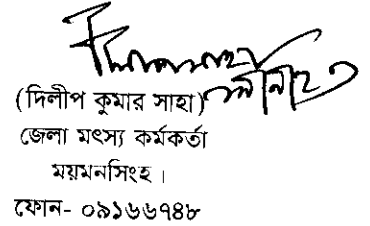 (দিলীপ কুমার সাহা)
জেলা মৎস্য কর্মকর্তা
ময়মনসিংহ।
ফোন- ০৯১৬৬৭৪৮